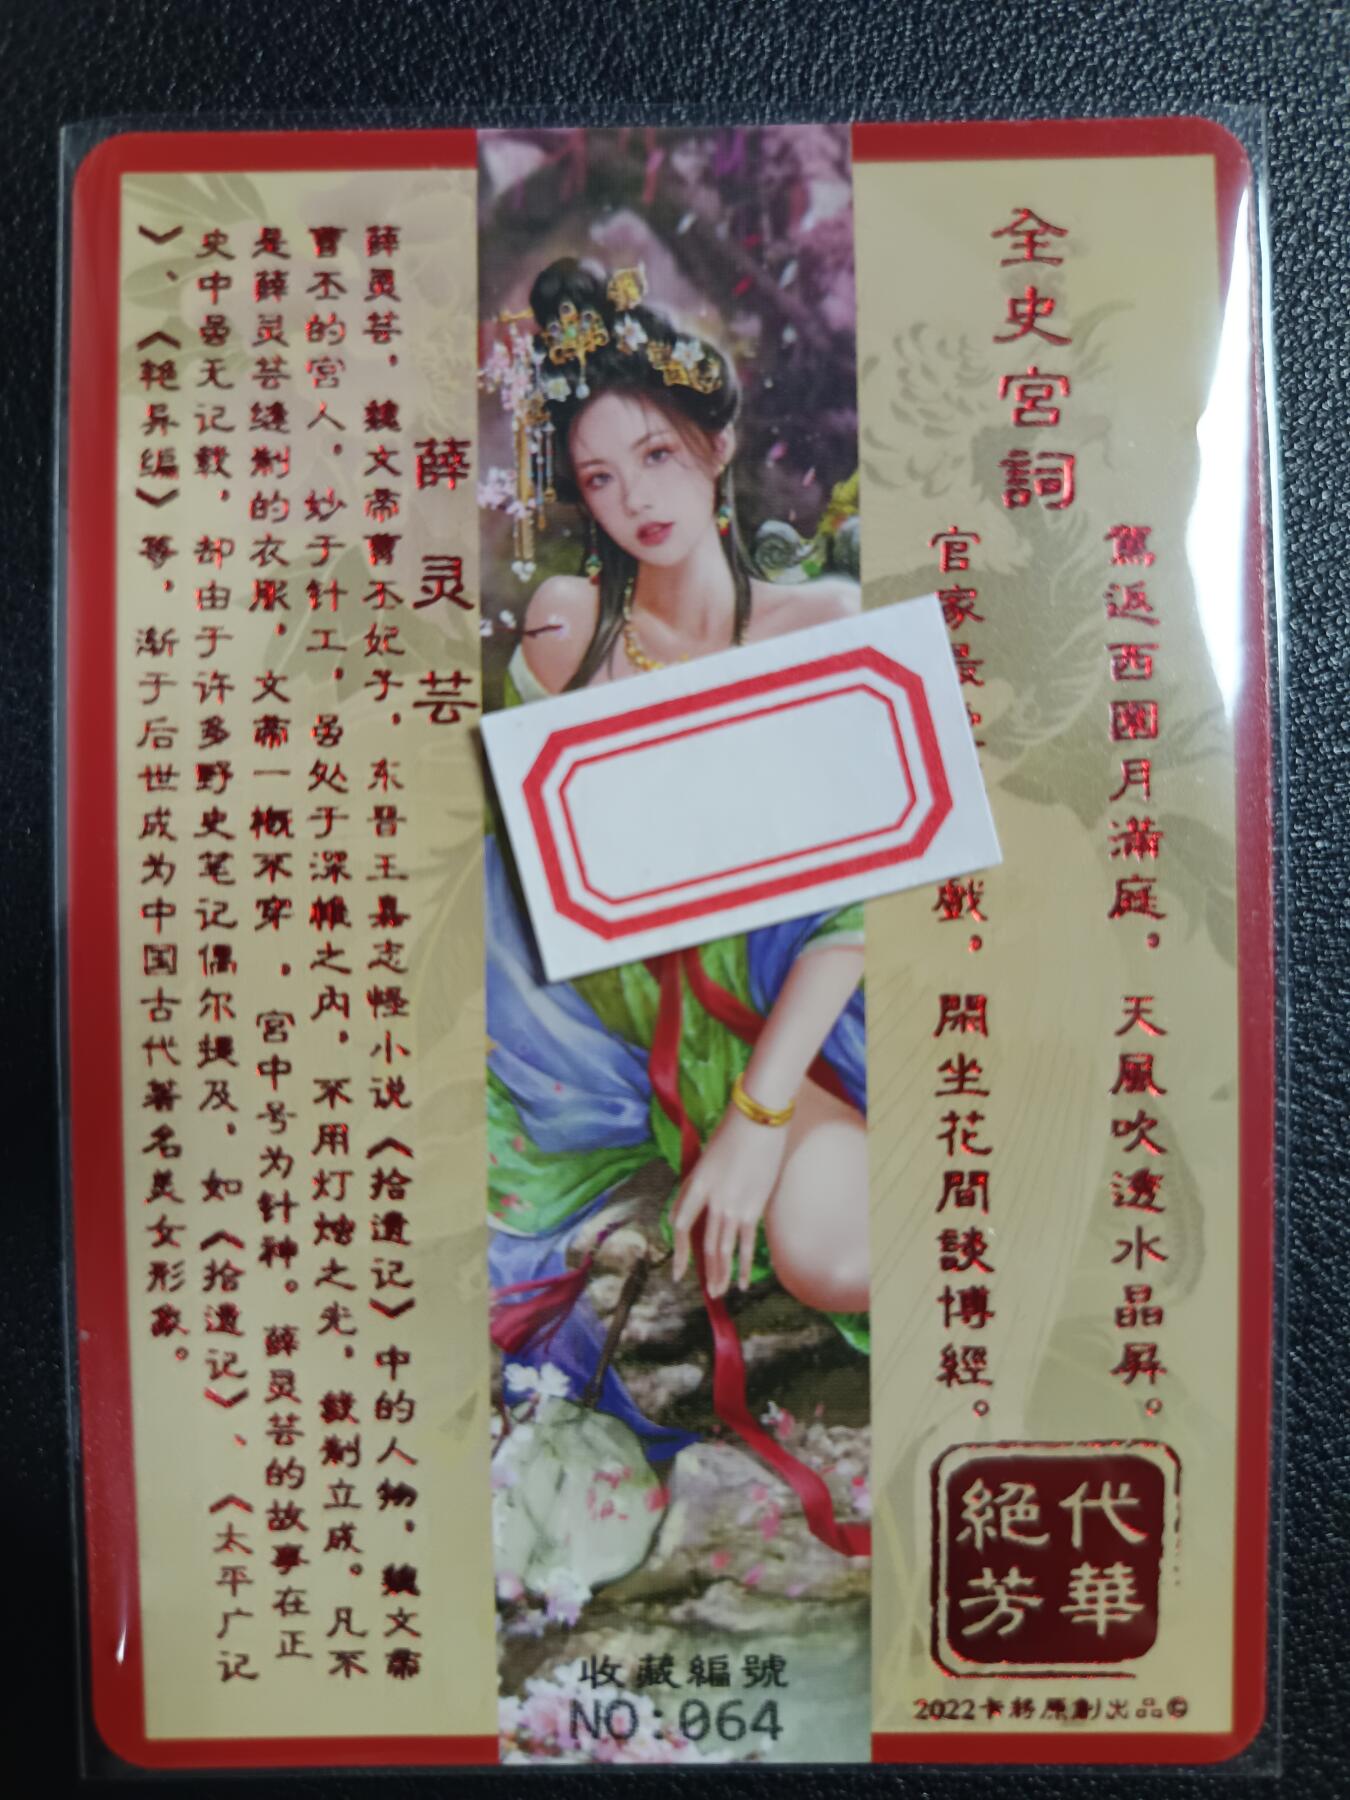 全史宮詞
駕返西園月滿庭，天風吹透水晶屏。
官家最
戲，閑坐花間談博經。
代華
絕芳
2022卡游原創出品©
薛灵芸
薛灵芸，魏文帝曹丕妃子，东晋王嘉志怪小说《拾遗记》中的人物，魏文帝
曹丕的宫人，妙于针工，虽处于深帷之内，不用灯烛之光，裁制立成。凡不
是薛灵芸缝制的衣服，文帝一概不穿，宫中号为针神。薛灵芸的故事在正
史中虽无记载，却由于许多野史笔记偶尔提及，如《拾遗记》、《太平广记
》、《艳异编》等，渐于后世成为中国古代著名美女形象。
收藏編號
NO:064